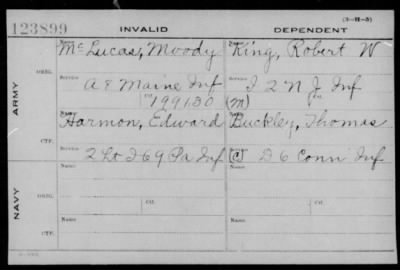 (3-H-5)
123899 INVALID DEPENDENT
ARMY
ORIG.
Name Name
McLucas, Moody King, Robert W
Service Service
A 8 Maine Inf I 2 N J Inf
Ctf. 199130 (M) Ctf.
CTF.
Name
Harmon, Edward Buckley, Thomas
Service
2 Lt I 69 Pa Inf D 6 Conn Inf
NAVY
ORIG.
Name Name
Ctf. Ctf.
CTF.
Name Name